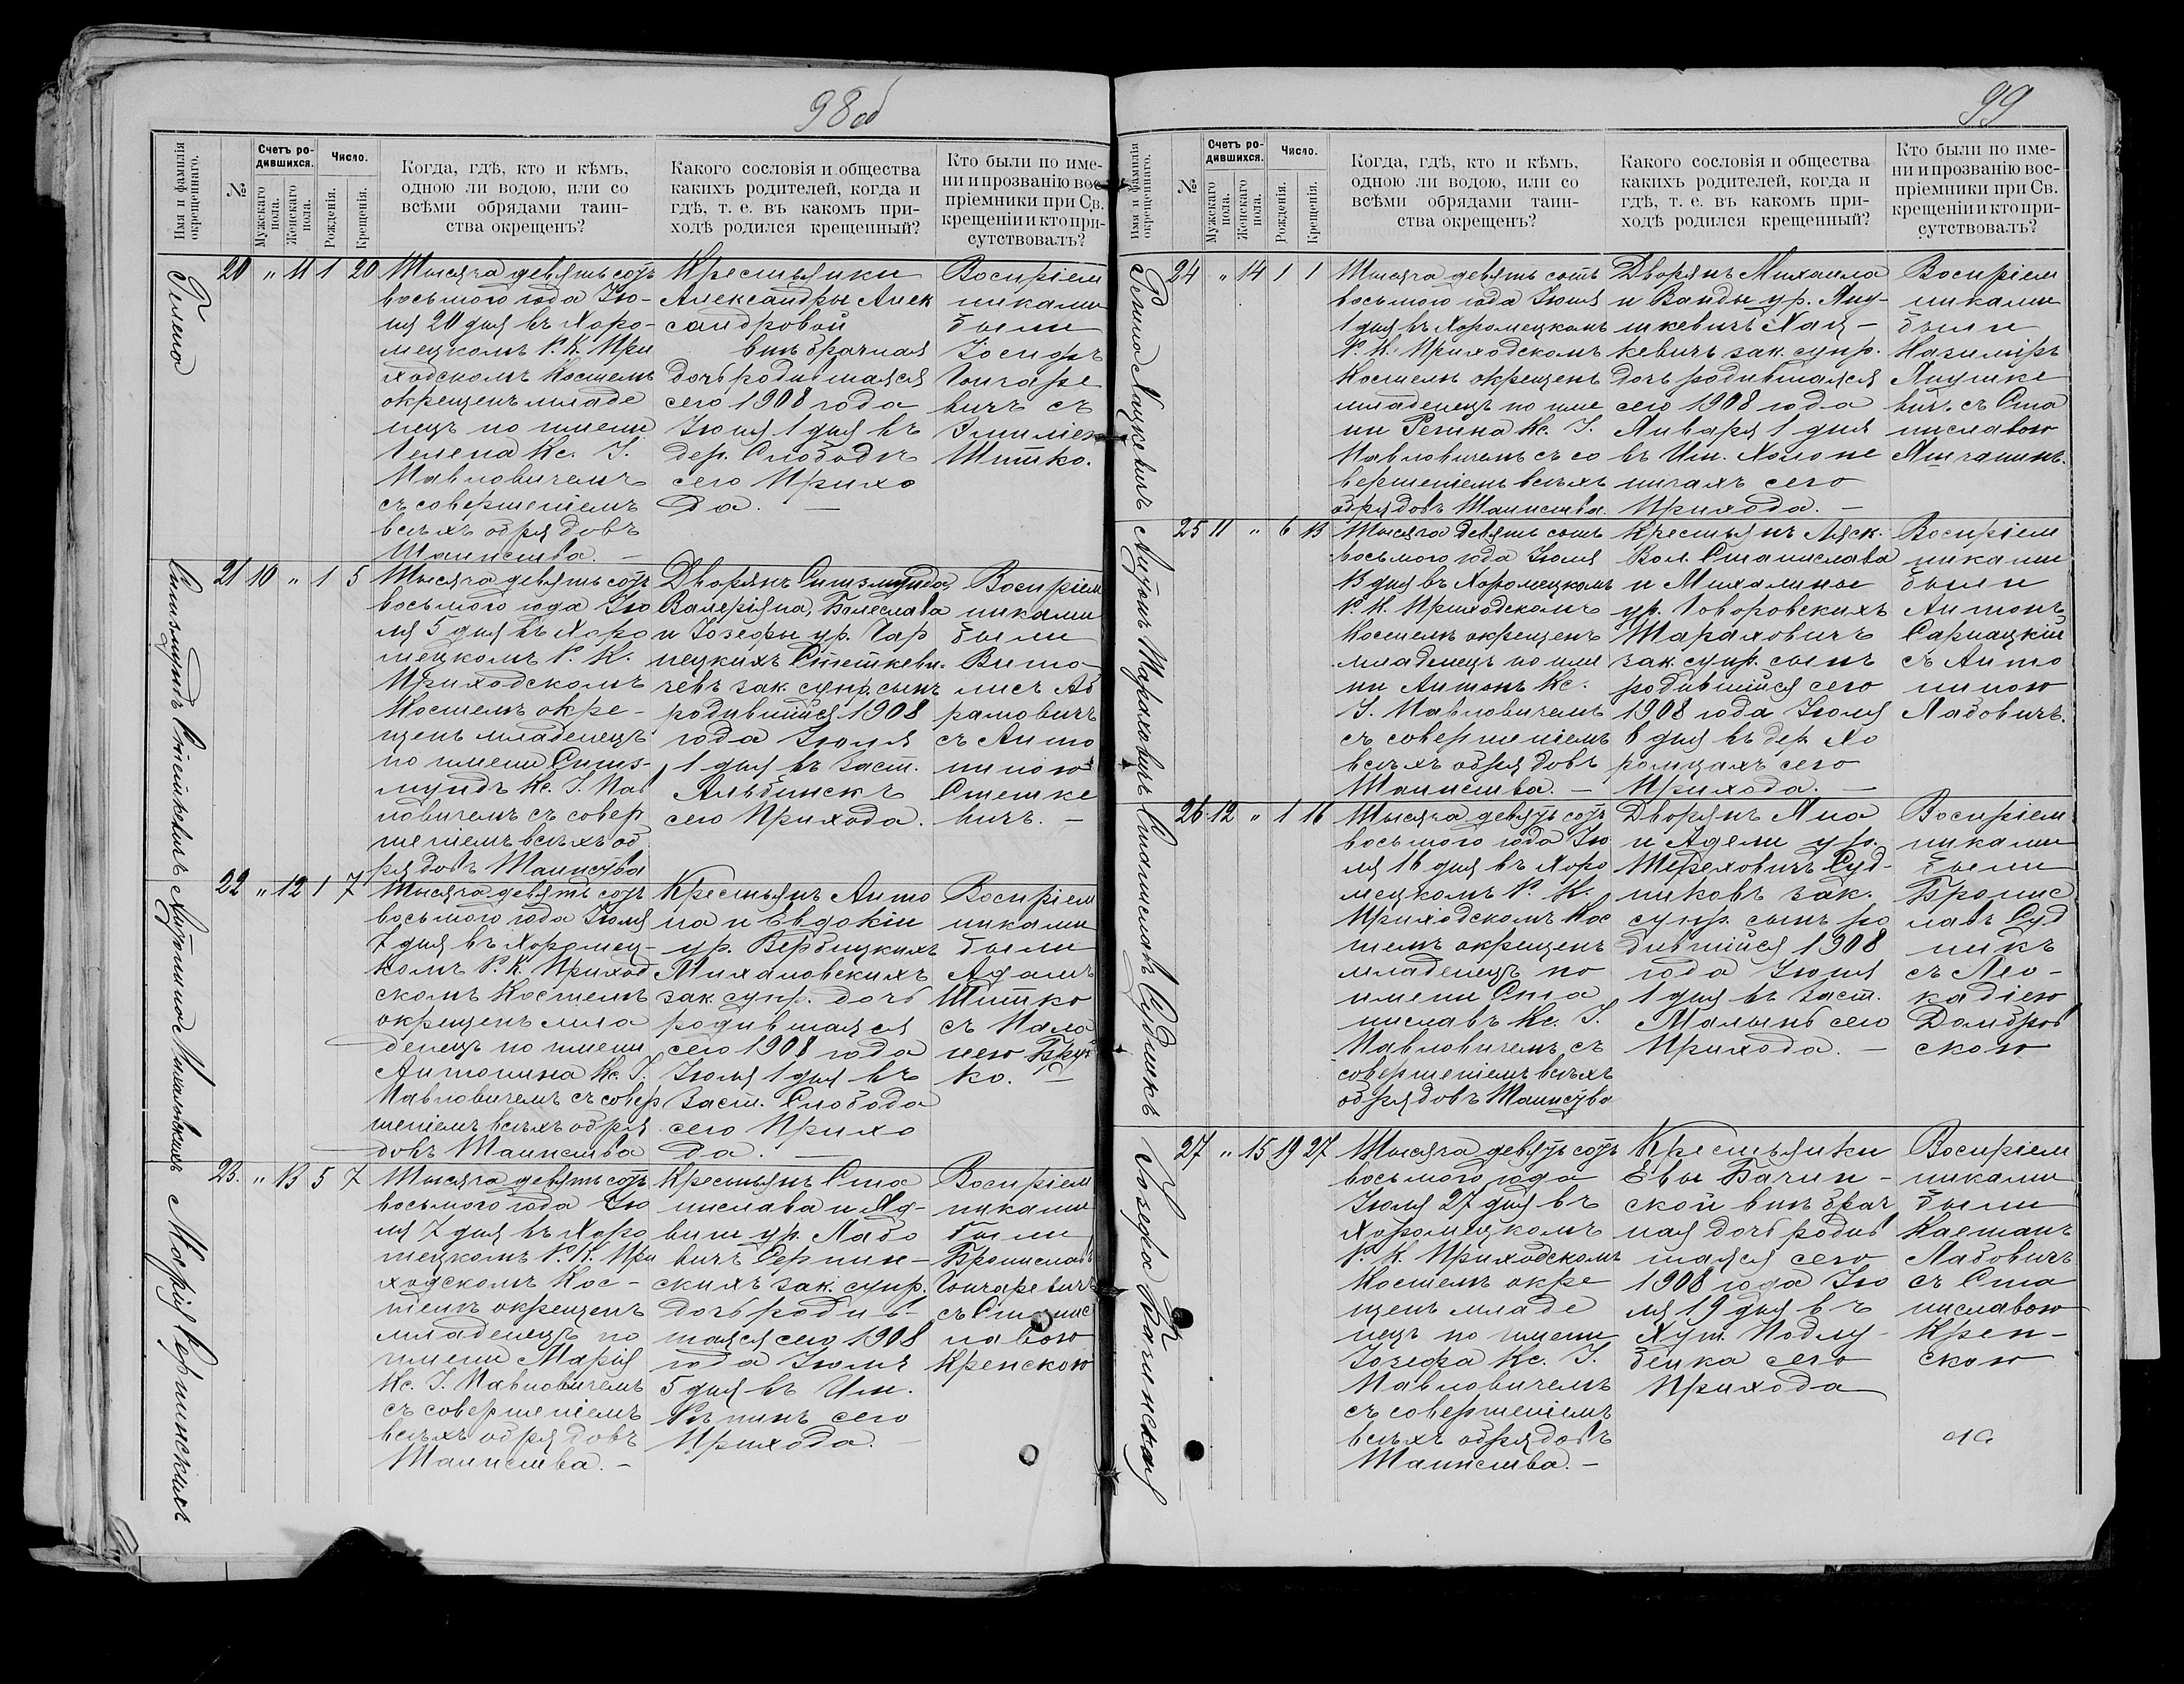 98 об
Имя и фамилія окрещеннаго.
№
Счетъ родившихся.
Мужскаго пола.
Женскаго пола.
Число.
Рожденія.
Крещенія.
Когда, гдѣ, кто и кѣмъ,
одною ли водою, или со
всѣми обрядами таин-
ства окрещенъ?
Какого сословія и общества
какихъ родителей, когда и
гдѣ, т. е. въ какомъ при-
ходѣ родился крещенный?
Кто были по име-
ни и прозванію вос-
пріемники при Св.
крещеніи и кто при-
сутствовалъ?
Гелена
20 „ 11 1 20
Тысяча девятьсотъ
восьмого года Ію-
ля 20 дня въ Хоро-
мецкомъ Р. К. При
ходскомъ Костелѣ
окрещенъ младе
нецъ по имени
Гелена Кс. І.
Павловичемъ
съ совершеніемъ
всѣхъ обрядовъ
Таинства. —
Крестьянки
Александры Алек
сандровой
внѣбрачная
дочь родившаяся
сего 1908 года
Іюля 1 дня въ
дер. Слободѣ
сего Прихо
да. —
Воспріем
никами
были
Іосифъ
Гончаре
вичъ съ
Эмиліею
Шитко.
Сигизмундъ Стешкевичъ
21 10 „ 1 5
Тысяча девятьсотъ
восьмого года Ію
ля 5 дня въ Хоро
мецкомъ Р. К.
Приходскомъ
Костелѣ окре-
щенъ младенецъ
по имени Сигиз-
мундъ Кс. І. Пав
ловичемъ съ совер
шеніемъ всѣхъ об
рядовъ Таинства
Дворянъ Сигизмунда,
Валеріяна, Болеслава
и Іозефы ур. Чар
нецкихъ Стешкеви-
чевъ зак. супр. сынъ
родившійся 1908
года Іюля
1 дня въ заст.
Альбинскѣ
сего Прихода.
Воспріем
никами
были
Вито-
лисъ Аб
рамовичъ
съ Анто
ниною
Стешке
вичъ. —
Антонина Михаловскихъ
22 „ 12 1 7
Тысяча девятьсотъ
восьмого года Іюля
7 дня въ Хоромец-
комъ Р. К. Приход
скомъ Костелѣ
окрещенъ мла
денецъ по имени
Антонина Кс. І.
Павловичемъ съ совер
шеніемъ всѣхъ обря
довъ Таинства
Крестьянъ Анто
на и Евдокіи
ур. Вербицкихъ
Михаловскихъ
зак. супр. дочь
родившаяся
сего 1908 года
Іюля 1 дня въ
Заст. Слобода
сего Прихо
да. —
Воспріем
никами
были
Адамъ
Шитко
съ Пало
нею
ко. —
Марія Серпинскихъ
23. „ 13 5 7
Тысяча девятьсотъ
восьмого года Ію
ля 7 дня въ Хоро
мецкомъ Р. К. При
ходскомъ Кос-
телѣ окрещенъ
младенецъ по
имени Марія
Кс. І. Павловичемъ
съ совершеніемъ
всѣхъ обрядовъ
Таинства. —
Крестьянъ Ста
нислава и Яд-
виги ур. Лабо
вичъ Серпин-
скихъ зак. супр.
дочь родив-
шаяся сего 1908
года Іюля
5 дня въ Им.
сего
Прихода. —
Воспріем
никами
были
Брониславъ
Гончаревичъ
съ Станис
лавою
Кренскою
99
Имя и фамилія окрещеннаго.
№
Счетъ родившихся.
Мужскаго пола.
Женскаго пола.
Число.
Рожденія.
Крещенія.
Когда, гдѣ, кто и кѣмъ,
одною ли водою, или со
всѣми обрядами таин-
ства окрещенъ?
Какого сословія и общества
какихъ родителей, когда и
гдѣ, т. е. въ какомъ при-
ходѣ родился крещенный?
Кто были по име-
ни и прозванію вос-
пріемники при Св.
крещеніи и кто при-
сутствовалъ?
Регина Хацкевичъ
24 „ 14 1 1
Тысяча девятьсотъ
восьмого года Іюля
1 дня въ Хоромецкомъ
Р. К. Приходскомъ
Костелѣ окрещенъ
младенецъ по име
ни Регина Кс. І.
Павловичемъ съ со
вершеніемъ всѣхъ
обрядовъ Таинства.
Дворянъ Михаила
и Ванды ур. Яну-
шкевичъ Хац-
кевичъ зак. супр.
дочь родившаяся
сего 1908 года
Января 1 дня
въ Им. Холопе
ничахъ сего
Прихода. —
Воспріем
никами
были
Казиміръ
Янушке
вичъ съ Ста
ниславою
Антонъ Тараховичъ
25 11 „ 6 13
Тысяча девятьсотъ
восьмого года Іюля
13 дня въ Хоромецкомъ
Р. К. Приходскомъ
Костелѣ окрещенъ
младенецъ по име
ни Антонъ Кс.
І. Павловичемъ
съ совершеніемъ
всѣхъ обрядовъ
Таинства. —
Крестьянъ Ляск.
Вол. Станислава
и Михалины
ур. Говоровскихъ
Тараховичъ
зак. супр. сынъ
родившійся сего
1908 года Іюля
6 дня въ дер. Хо
ромцахъ сего
Прихода. —
Воспріем
никами
были
Антонъ
Сарнацкій
съ Анто
ниною
Лабовичъ.
Станиславъ Судникъ
26 12 „ 1 16
Тысяча девятьсотъ
восьмого года Ію
ля 16 дня въ Хоро
мецкомъ Р. К.
Приходскомъ Кос
телѣ окрещенъ
младенецъ по
имени Ста
ниславъ Кс. І.
Павловичемъ съ
совершеніемъ всѣхъ
обрядовъ Таинства
Дворянъ Яна
и Адели ур.
Тереховичъ Суд-
никовъ зак.
супр. сынъ ро
дившійся 1908
года Іюля
1 дня въ заст.
Малынь сего
Прихода. —
Воспріем
никами
были
Бронис
лавъ Суд
никъ
съ Лео-
кадіею
Домбров
скою
Іозефа Бачинская
27 „ 15 19 27
Тысяча девятьсотъ
восьмого года
Іюля 27 дня въ
Хоромецкомъ
Р. К. Приходскомъ
Костелѣ окре
щенъ младе
нецъ по имени
Іозефа Кс. І.
Павловичемъ
съ совершеніемъ
всѣхъ обрядовъ
Таинства. —
Крестьянки
Евы Бачин-
ской внѣбрач
ная дочь родив
шаяся сего
1908 года Ію
ля 19 дня въ
Хут. Подлу-
бенка сего
Прихода
Воспріем
никами
были
Каетанъ
Лабовичъ
съ Ста
ниславою
Крен-
скою